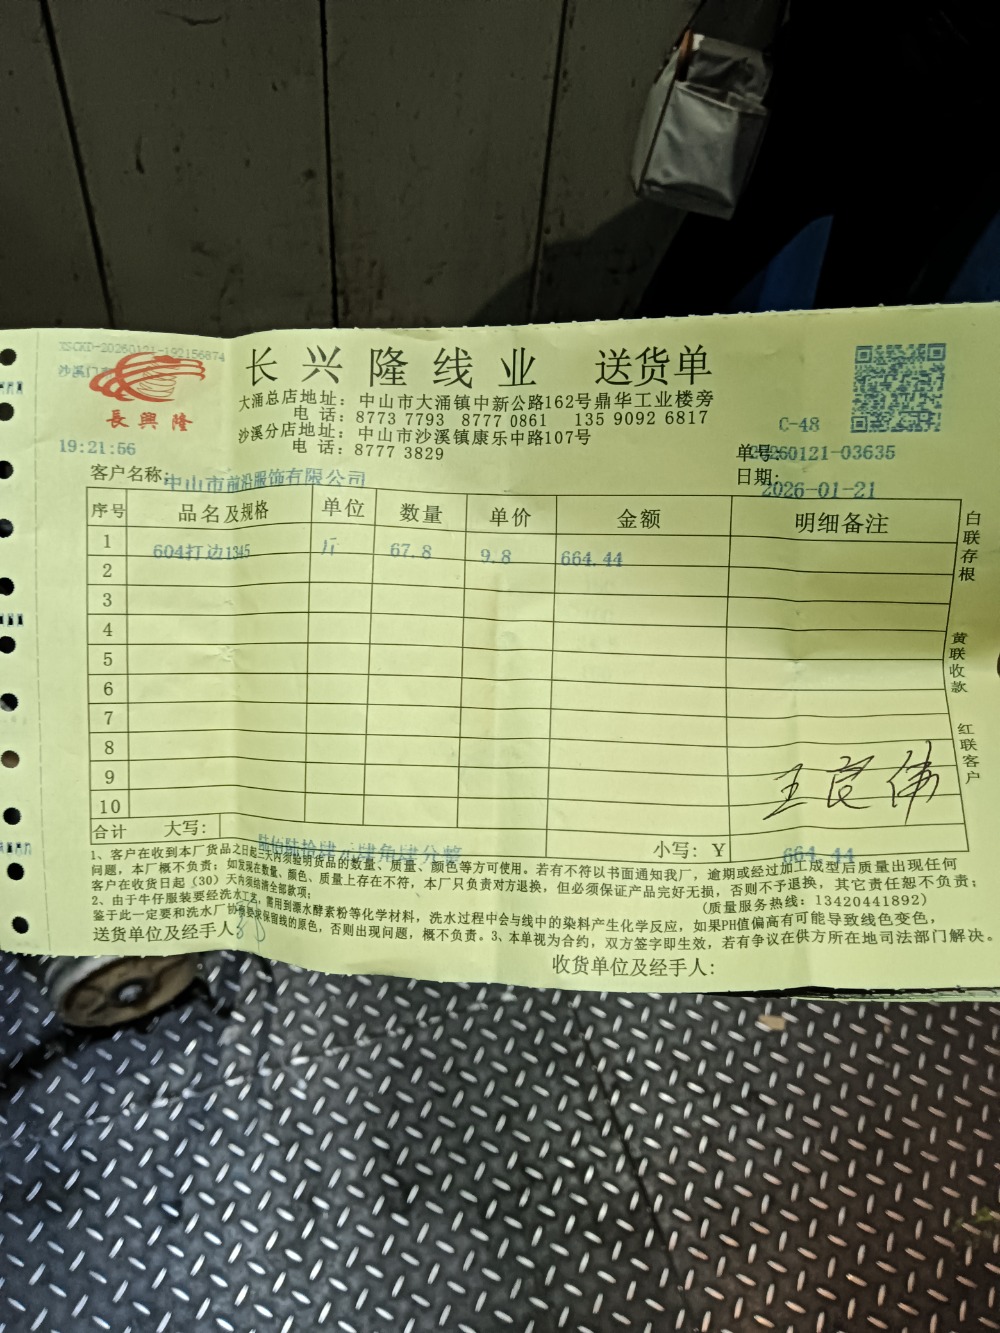 XSCKD-20260121-192156874
沙溪门
長興隆
长兴隆线业 送货单
大涌总店地址：中山市大涌镇中新公路162号鼎华工业楼旁
电 话：8773 7793 8777 0861 135 9092 6817
沙溪分店地址：中山市沙溪镇康乐中路107号
电 话：8777 3829
C-48
19:21:56
单号:20260121-03635
客户名称:中山市前沿服饰有限公司
日期:2026-01-21
序号 品名及规格 单位 数量 单价 金额 明细备注
1 604打边1345 斤 67.8 9.8 664.44
2
3
4
5
6
7
8
9
10
王良伟
合计 大写: 陆佰陆拾肆元肆角肆分整 小写: Y 664.44
1、客户在收到本厂货品之日起三天内须验明货品的数量、质量、颜色等方可使用。若有不符以书面通知我厂，逾期或经过加工成型后质量出现任何
问题，本厂概不负责；如发现在数量、颜色、质量上存在不符，本厂只负责对方退换，但必须保证产品完好无损，否则不予退换，其它责任恕不负责；
客户在收货日起（30）天内须给清全部款项；
(质量服务热线：13420441892)
2、由于牛仔服装要经洗水工艺，需用到漂水酵素粉等化学材料，洗水过程中会与线中的染料产生化学反应，如果PH值偏高有可能导致线色变色，
鉴于此一定要和洗水厂协商要求保留线的原色，否则出现问题，概不负责。3、本单视为合约，双方签字即生效，若有争议在供方所在地司法部门解决。
送货单位及经手人:
收货单位及经手人:
白联存根
黄联收款
红联客户